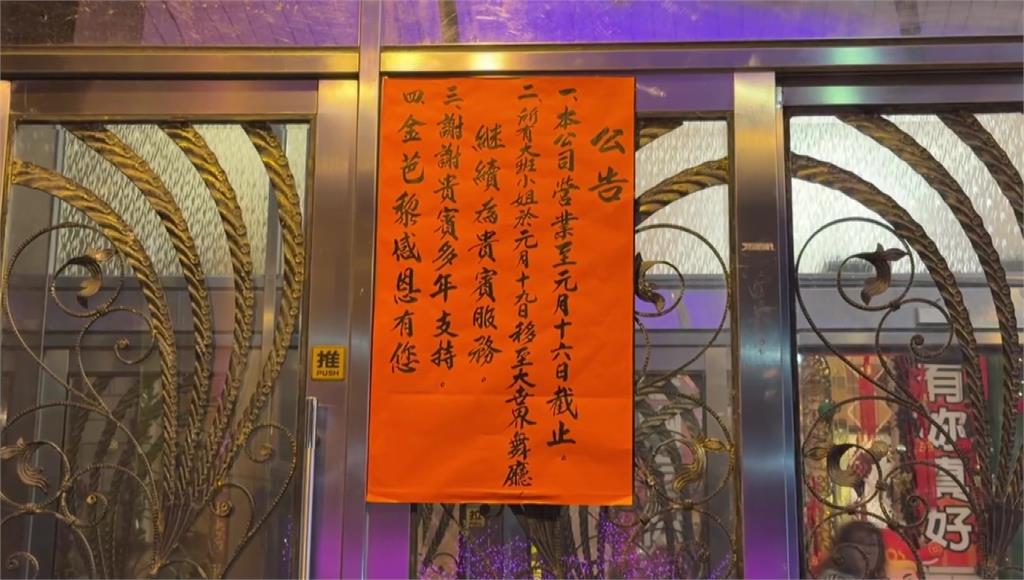 公告
一、本公司營業至元月十六日截止。
二、所有大班小姐於元月十九日移至大世界舞廳
繼續為貴賓服務。
三、謝謝貴賓多年支持。
四、金芭黎感恩有您
推
PUSH
有妳真好